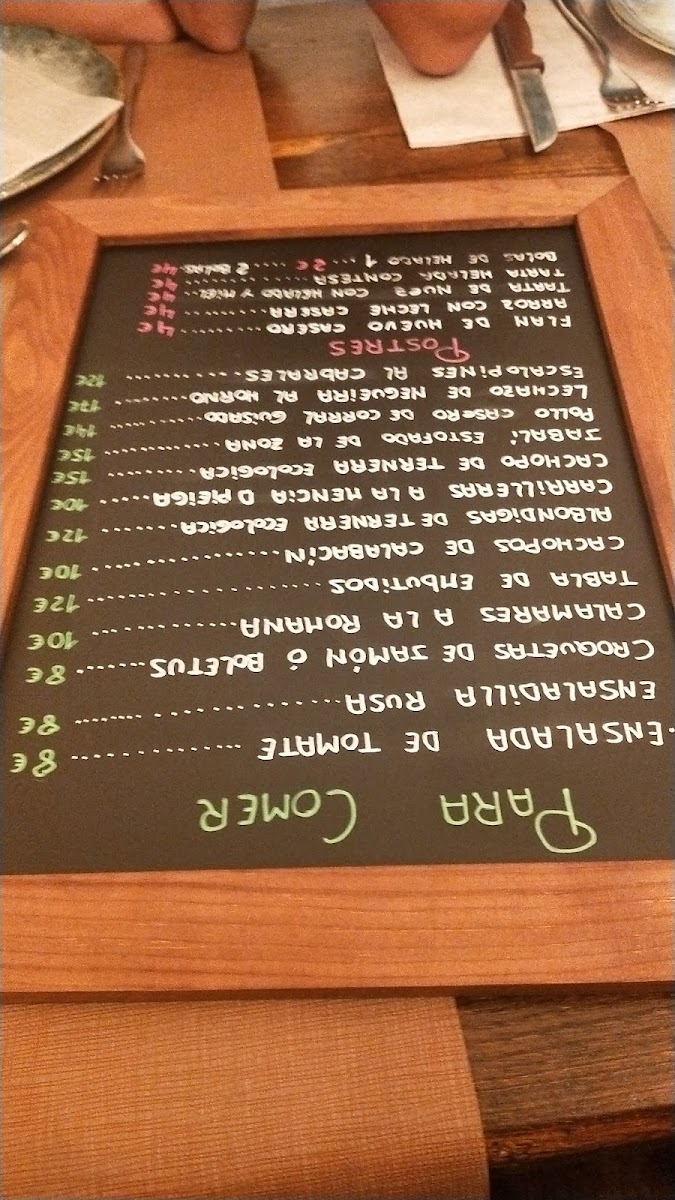 PARA COMER
·ENSALADA DE TOMATE .......... 8€
ENSALADILLA RUSA .......... 8€
CROQUETAS DE JAMÓN Ó BOLETUS .......... 8€
CALAMARES A LA ROMANA .......... 10€
TABLA DE EMBUTIDOS .......... 12€
CACHOPOS DE CALABACÍN .......... 10€
ALBONDIGAS DE TERNERA ECOLOGICA .......... 12€
CARRILLERAS A LA MENCIA D PIEIGA .......... 10€
CACHOPO DE TERNERA ECOLOGICA .......... 15€
JABALÍ ESTOFADO DE LA ZONA .......... 15€
POLLO CASERO DE CORRAL GUISADO .......... 14€
LECHAZO DE NEGUEIRA AL HORNO .......... 17€
ESCALOPINES AL CABRALES .......... 12€
POSTRES
FLAN DE HUEVO CASERO .......... 4€
ARROZ CON LECHE CASERA .......... 4€
TARTA DE NUEZ CON HELADO Y MIEL .. 4€
TARTA HELADA CONTESA .......... 4€
BOLAS DE HELADO 1 ... 2€ ..... 2 BOLAS. 4€